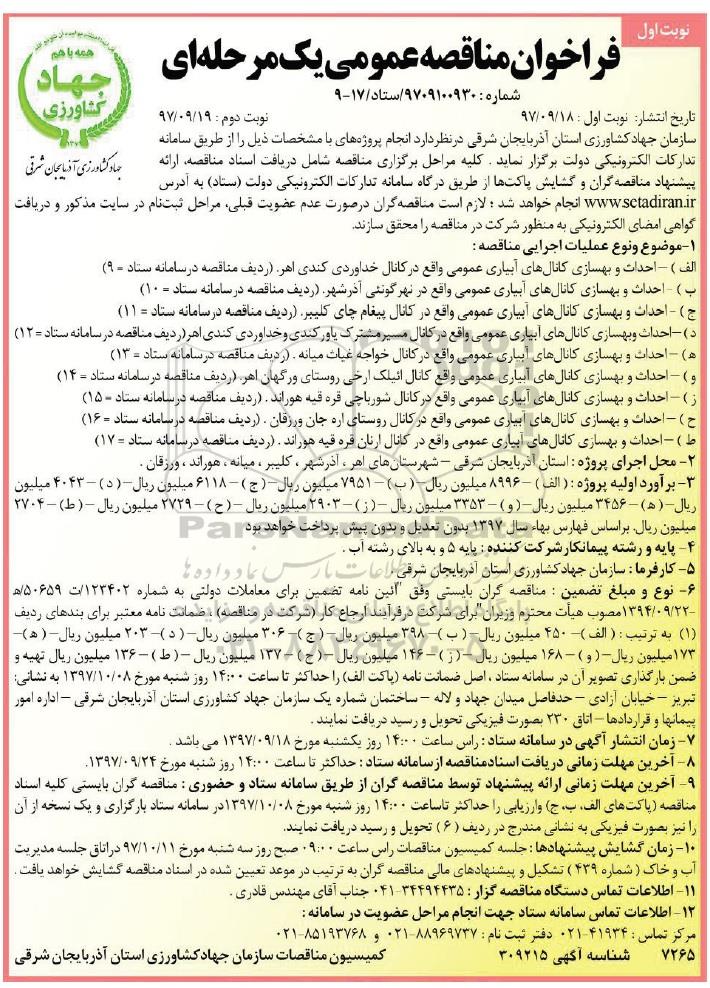 نوبت اول
فراخوان مناقصه عمومی یک مرحله‌ای
شماره : ۹۷۰۹۱۰۰۹۳۰/ستاد/۱۷-۹
همه با هم
جهاد
کشاورزی
جهاد کشاورزی آذربایجان شرقی
تاریخ انتشار: نوبت اول : ۹۷/۰۹/۱۸ نوبت دوم : ۹۷/۰۹/۱۹
سازمان جهاد کشاورزی استان آذربایجان شرقی درنظر دارد انجام پروژه‌های با مشخصات ذیل را از طریق سامانه
تدارکات الکترونیکی دولت برگزار نماید . کلیه مراحل برگزاری مناقصه شامل دریافت اسناد مناقصه، ارائه
پیشنهاد مناقصه‌گران و گشایش پاکت‌ها از طریق درگاه سامانه تدارکات الکترونیکی دولت (ستاد) به آدرس
www.setadiran.ir انجام خواهد شد ؛ لازم است مناقصه‌گران درصورت عدم عضویت قبلی، مراحل ثبت‌نام در سایت مذکور و دریافت
گواهی امضای الکترونیکی به منظور شرکت در مناقصه را محقق سازند.
۱-موضوع ونوع عملیات اجرایی مناقصه :
الف ) –احداث و بهسازی کانال‌های آبیاری عمومی واقع درکانال خداوردی کندی اهر. (ردیف مناقصه درسامانه ستاد = ۹)
ب ) - احداث و بهسازی کانال‌های آبیاری عمومی واقع در نهر گونئی آذرشهر. (ردیف مناقصه درسامانه ستاد = ۱۰)
ج ) - احداث و بهسازی کانال‌های آبیاری عمومی واقع در کانال پیغام چای کلیبر. (ردیف مناقصه درسامانه ستاد = ۱۱)
د)–احداث وبهسازی کانال‌های آبیاری عمومی واقع در کانال مسیرمشترک یاور کندی وخداوردی کندی اهر(ردیف مناقصه درسامانه ستاد =۱۲)
ه ) – احداث و بهسازی کانال‌های آبیاری عمومی واقع درکانال خواجه غیاث میانه . (ردیف مناقصه درسامانه ستاد = ۱۳)
و ) – احداث و بهسازی کانال‌های آبیاری عمومی واقع کانال ائیلک ارخی روستای ورگهان اهر. (ردیف مناقصه درسامانه ستاد = ۱۴)
ز ) – احداث و بهسازی کانال‌های آبیاری عمومی واقع درکانال شورباچی قره قیه هوراند . (ردیف مناقصه درسامانه ستاد = ۱۵)
ح ) – احداث و بهسازی کانال‌های آبیاری عمومی واقع درکانال روستای اره جان ورزقان . (ردیف مناقصه درسامانه ستاد = ۱۶)
ط ) –احداث و بهسازی کانال‌های آبیاری عمومی واقع در کانال ارنان قره قیه هوراند . (ردیف مناقصه درسامانه ستاد = ۱۷)
۲- محل اجرای پروژه : استان آذربایجان شرقی – شهرستان‌های اهر ، آذرشهر ، کلیبر ، میانه ، هوراند ، ورزقان .
۳- برآورد اولیه پروژه : ( الف ) –۸۹۹۶ میلیون ریال– ( ب ) – ۷۹۵۱ میلیون ریال– ( ج ) – ۶۱۱۸ میلیون ریال– ( د ) – ۴۰۴۳ میلیون
ریال– (ه) –۳۴۵۶ میلیون ریال– ( و ) – ۳۳۵۳ میلیون ریال – ( ز ) – ۲۹۰۳ میلیون ریال – ( ح ) – ۲۷۲۹ میلیون ریال – ( ط) – ۲۷۰۴
میلیون ریال. براساس فهارس بهاء سال ۱۳۹۷ بدون تعدیل و بدون پیش پرداخت خواهد بود
۴- پایه و رشته پیمانکار شرکت کننده : پایه ۵ و به بالای رشته آب .
۵- کارفرما : سازمان جهاد کشاورزی استان آذربایجان شرقی
۶- نوع و مبلغ تضمین : مناقصه گران بایستی وفق "آئین نامه تضمین برای معاملات دولتی به شماره ۱۲۳۴۰۲/ت ۵۰۶۵۹/ه
-۱۳۹۴/۰۹/۲۲مصوب هیأت محترم وزیران"برای شرکت درفرآیند ارجاع کار (شرکت در مناقصه) ، ضمانت نامه معتبر برای بندهای ردیف
(۱) به ترتیب : ( الف) – ۴۵۰ میلیون ریال– ( ب ) – ۳۹۸ میلیون ریال– ( ج) – ۳۰۶ میلیون ریال– ( د ) – ۲۰۳ میلیون ریال– ( ه) –
۱۷۳میلیون ریال– ( و ) – ۱۶۸ میلیون ریال– ( ز ) – ۱۴۶ میلیون ریال– ( ح) – ۱۳۷ میلیون ریال – ( ط) – ۱۳۶ میلیون ریال تهیه و
ضمن بارگذاری تصویر آن در سامانه ستاد ، اصل ضمانت نامه (پاکت الف) را حداکثر تا ساعت ۱۴:۰۰ روز شنبه مورخ ۱۳۹۷/۱۰/۰۸ به نشانی:
تبریز – خیابان آزادی – حدفاصل میدان جهاد و لاله – ساختمان شماره یک سازمان جهاد کشاورزی استان آذربایجان شرقی – اداره امور
پیمانها و قراردادها – اتاق ۲۳۰ بصورت فیزیکی تحویل و رسید دریافت نمایند .
۷- زمان انتشار آگهی در سامانه ستاد : راس ساعت ۱۴:۰۰ روز یکشنبه مورخ ۱۳۹۷/۰۹/۱۸ می باشد .
۸- آخرین مهلت زمانی دریافت اسناد مناقصه از سامانه ستاد : حداکثر تا ساعت ۱۴:۰۰ روز شنبه مورخ ۱۳۹۷/۰۹/۲۴.
۹- آخرین مهلت زمانی ارائه پیشنهاد توسط مناقصه گران از طریق سامانه ستاد و حضوری : مناقصه گران بایستی کلیه اسناد
مناقصه (پاکت‌های الف، ب، ج) وارزیابی را حداکثر تاساعت ۱۴:۰۰ روز شنبه مورخ ۱۳۹۷/۱۰/۰۸در سامانه ستاد بارگزاری و یک نسخه از آن
را نیز بصورت فیزیکی به نشانی مندرج در ردیف ( ۶ ) تحویل و رسید دریافت نمایند.
۱۰- زمان گشایش پیشنهادها : جلسه کمیسیون مناقصات راس ساعت ۰۹:۰۰ صبح روز سه شنبه مورخ ۹۷/۱۰/۱۱ دراتاق جلسه مدیریت
آب و خاک ( شماره ۴۳۹ ) تشکیل و پیشنهادهای مالی مناقصه گران به ترتیب در موعد تعیین شده در اسناد مناقصه گشایش خواهد یافت .
۱۱- اطلاعات تماس دستگاه مناقصه گزار : ۳۴۴۹۴۴۳۵-۰۴۱ جناب آقای مهندس قادری .
۱۲- اطلاعات تماس سامانه ستاد جهت انجام مراحل عضویت در سامانه :
مرکز تماس : ۴۱۹۳۴-۰۲۱ دفتر ثبت نام : ۸۸۹۶۹۷۳۷-۰۲۱ و ۸۵۱۹۳۷۶۸-۰۲۱
۷۲۶۵ شناسه آگهی ۳۰۹۲۱۵ کمیسیون مناقصات سازمان جهاد کشاورزی استان آذربایجان شرقی